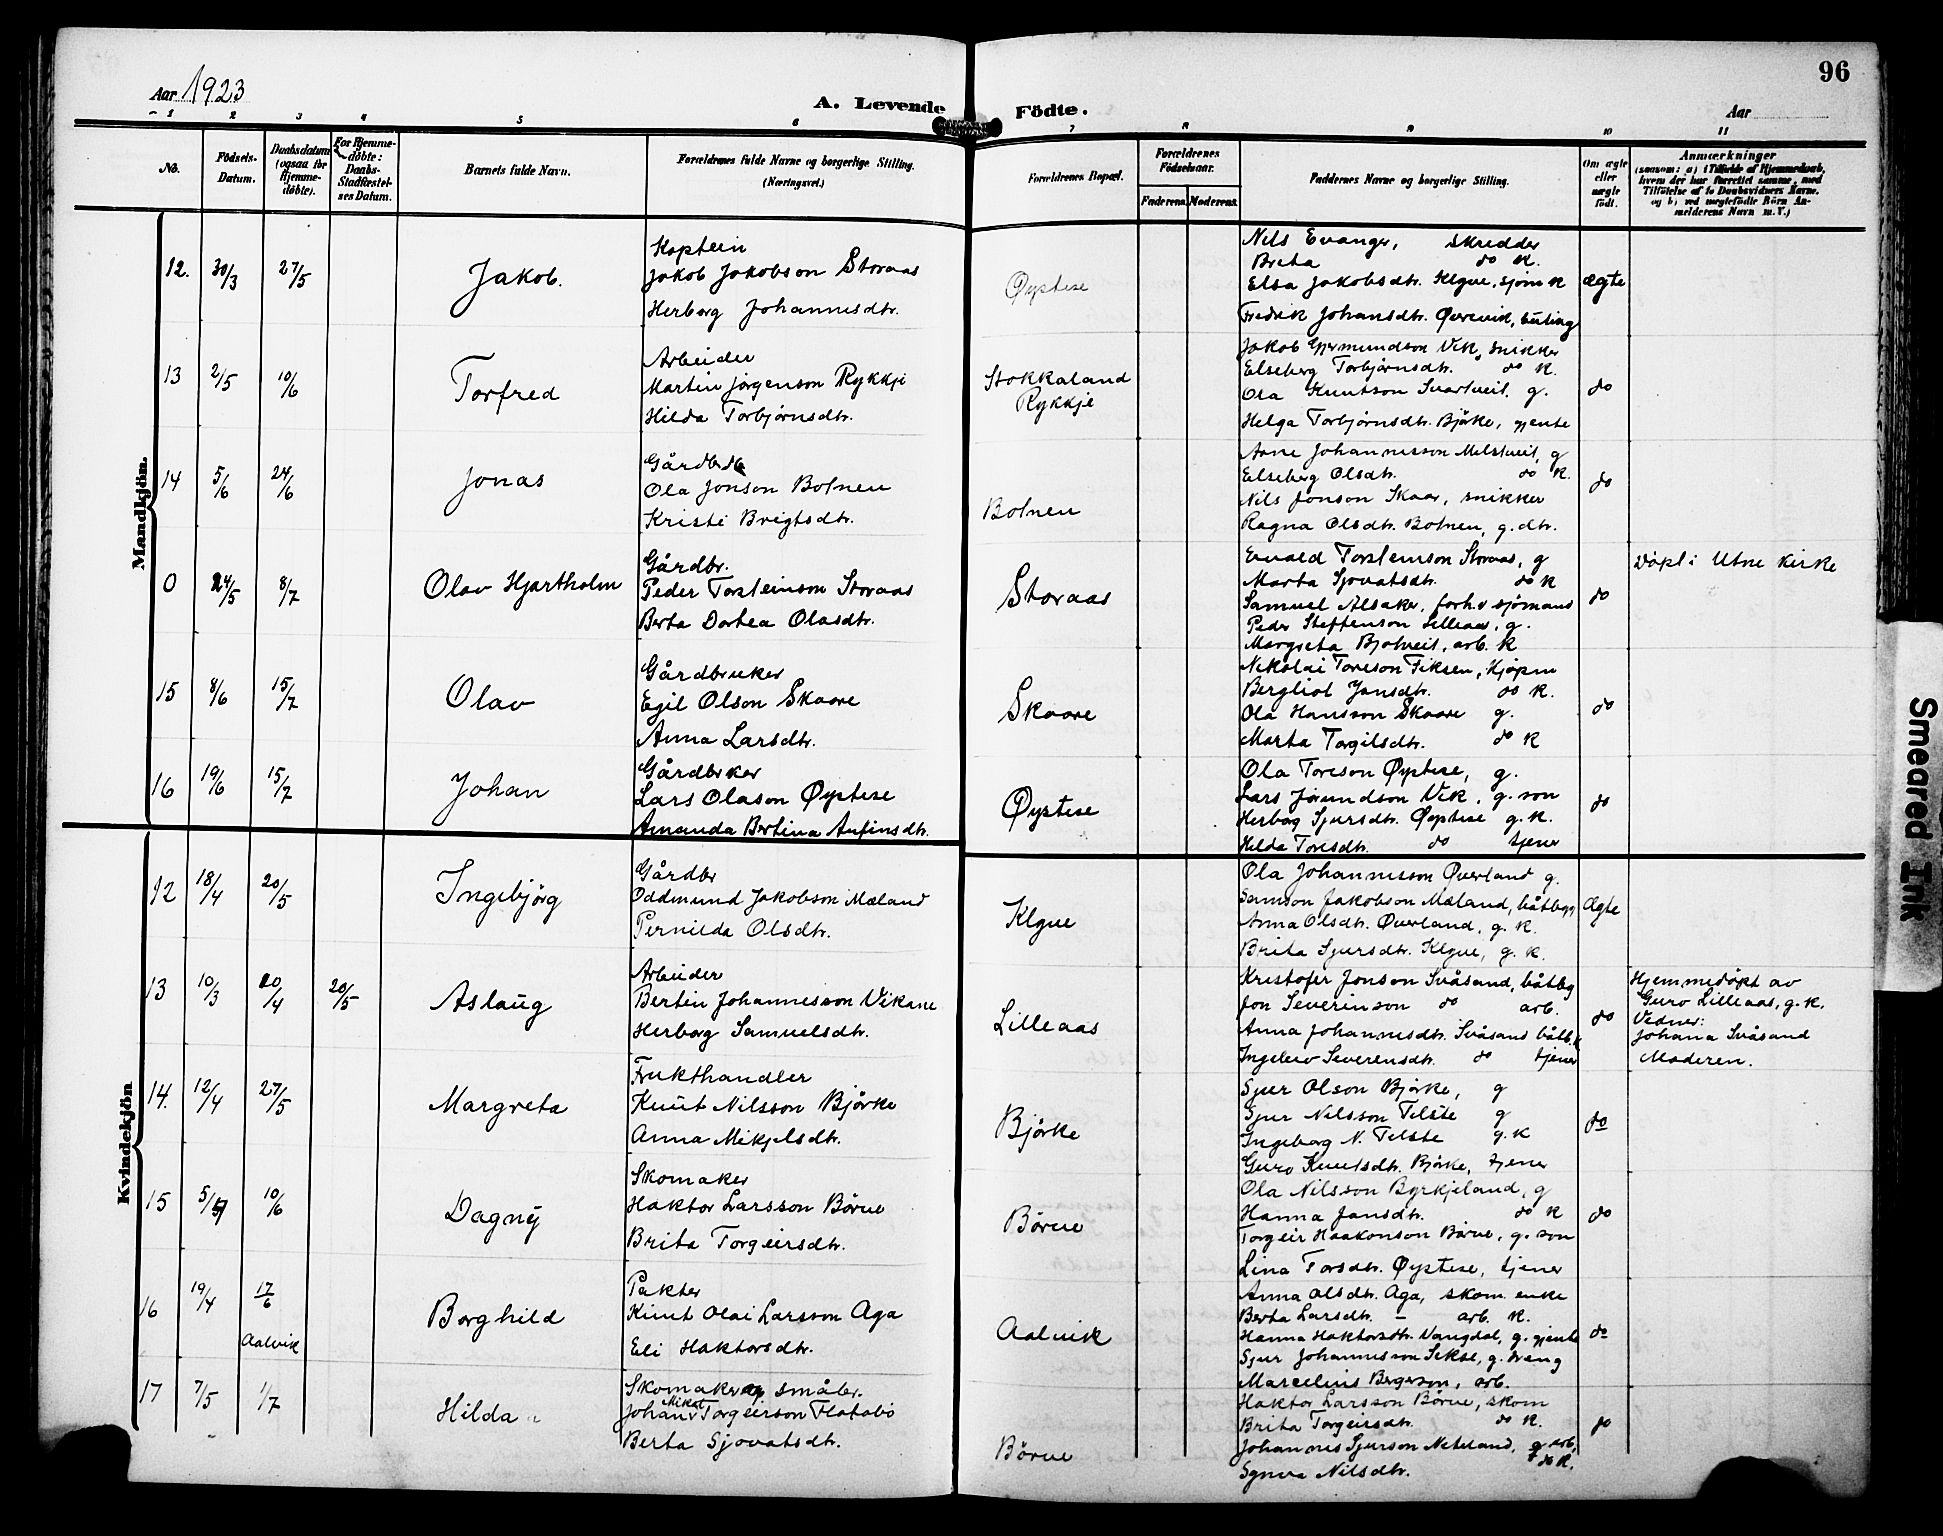 96
Aar 1923
A. Levende Födte.
Aar
1 2 3 4 5 6 7 8 9 10 11
No.
Födsels-Datum.
Daabsdatum (ogsaa for Hjemme-döbte).
For Hjemme-döbte: Daabs-Stadfæstel-ses Datum.
Barnets fulde Navn.
Forældrenes fulde Navne og borgerlige Stilling.
(Næringsvei.)
Forældrenes Bopæl.
Forældrenes Födselsaar.
Faderens. Moderens.
Faddernes Navne og borgerlige Stilling.
Om ægte eller uægte födt.
Anmærkninger
(saasom: a) i Tilfælde af Hjemmedaab,
hvem der har forrettet samme, med
Tilföielse af to Daabsvidners Navne,
og b) ved uægtefödte Börn An-
melderens Navn m. V.)
Mandkjön.
12. 30/3 27/5 Jakob.
Kaptein
Jakob Jakobson Storaas
Herborg Johannesdtr.
Øystese
Nils Evanger, skredder
Brita do K.
Elsa Jakobsdtr. Klyve, sjøm K
Fredrik Johansdtr. Øvrevik,
Ægte
13 2/5 10/6 Torfred
Arbeider
Martin Jørgenson Rykkje
Hilda Torbjørnsdtr.
Stokkaland
Rykkje
Jakob Vik, snikker
Elseberg Torbjørnsdtr. do K.
Ola Knutson Svartveit, g.
Helga Torbjørnsdtr. Bjørke, gjente
do
14 5/6 24/6 Jonas
Gårdbr
Ola Jonson Botnen
Kristi Brigtsdtr.
Botnen
Arne Johannesson Melstveit, g
Elseberg Olsdtr. do K.
Nils Jonson Skaar, snikker
Ragna Olsdtr. Botnen, g. dtr.
do
0 24/5 8/7 Olav Hjartholm
Gårdbr.
Peder Torsteinson Storaas
Berta Dortea Olasdtr.
Storaas
Evald Torsteinson Storaas, g
Marta Sjovatsdtr. do K
Samuel Alsaker, forh.v sjømans
Peder Steffenson Lilleaas, g.
Margreta Bjotveit, arb. K
do
Døpt i Utne Kirke
15 8/6 15/7 Olav
Gårdbruker
Egil Olson Skaare
Anna Larsdtr.
Skaare
Nikolai Toreson Fiksen, Kjøpm
Bergliot Jonsdtr. do K.
Ola Hansson Skaare g.
Marta Torgilsdtr. do K
do
16 19/6 15/7 Johan
Gårdbrker
Lars Olason Øystese
Amanda Bertina Anfinsdtr.
Øystese
Ola Toreson Øystese, g.
Lars Jørundson Vik, g. son
Herborg Sjursdtr. Øystese g. K.
Hilda Toresdtr. do tjener
do
Kvindekjön
12 18/4 20/5 Ingebjørg
Gårdbr
Oddmund Jakobson Mæland
Pernilda Olsdtr.
Klyve
Ola Johannesson Øverland g.
Samson Jakobson Mæland, båtbyg
Anna Olsdtr. Øverland, g. K.
Brita Sjursdtr. Klyve, g. K.
Ægte
13 10/3 20/4 20/5 Aslaug
Arbeider
Bertin Johannesson Vikane
Herborg Samuelsdtr.
Lilleaas
Kristofer Jonson Svåsand, båtbyg
Jon Severinson do arb.
Anna Johannesdtr. Svåsand båtb. K
Ingeleiv Severinsdtr. do tjener
do
Hjemmedøpt av
Guro Lilleaas, g. K.
Vedner:
Johana Svåsand
Moderen.
14. 12/4 27/5 Margreta
Frukthandler
Knut Nilsson Bjørke
Anna Mikjelsdtr.
Bjørke
Sjur Olson Bjørke, g
Sjur Nilsson Telste g
Ingeborg N. Telste g. K
Guro Knutsdtr. Bjørke, tjener
do
15 5/5 10/6 Dagny
Skomaker
Haktor Larsson Børve
Brita Torgeirsdtr.
Børve
Ola Nilsson Byrkjeland, g
Hanna Jansdtr. do K
Torgeir Haakonson Børve, g. son
Lina Torsdtr. Øystese, tjener
do
16 19/4 17/6 Aalvik Borghild
Pakter
Knut Olai Larsson Aga
Eli Haktorsdtr.
Aalvik
Anna Olsdtr. Aga, skom. enke
Berta Larsdtr. — arb. K.
Hanna Haktorsdtr. Vangdal, g. gjente
Sjur Johannesson Sekse, g. dreng
Marcelius Bergerson, arb.
do
17 7/5 1/7 Hilda
Skomaker og småbr.
Johan Mikal Torgeirson Flatabø
Berta Sjovatsdtr.
Børve
Haktor Larsson Børve, skom
Brita Torgeirsdtr. do K.
Johannes Sjurson Neteland, g arb,
Synva Nilsdtr. do K.
do
Smeared Ink